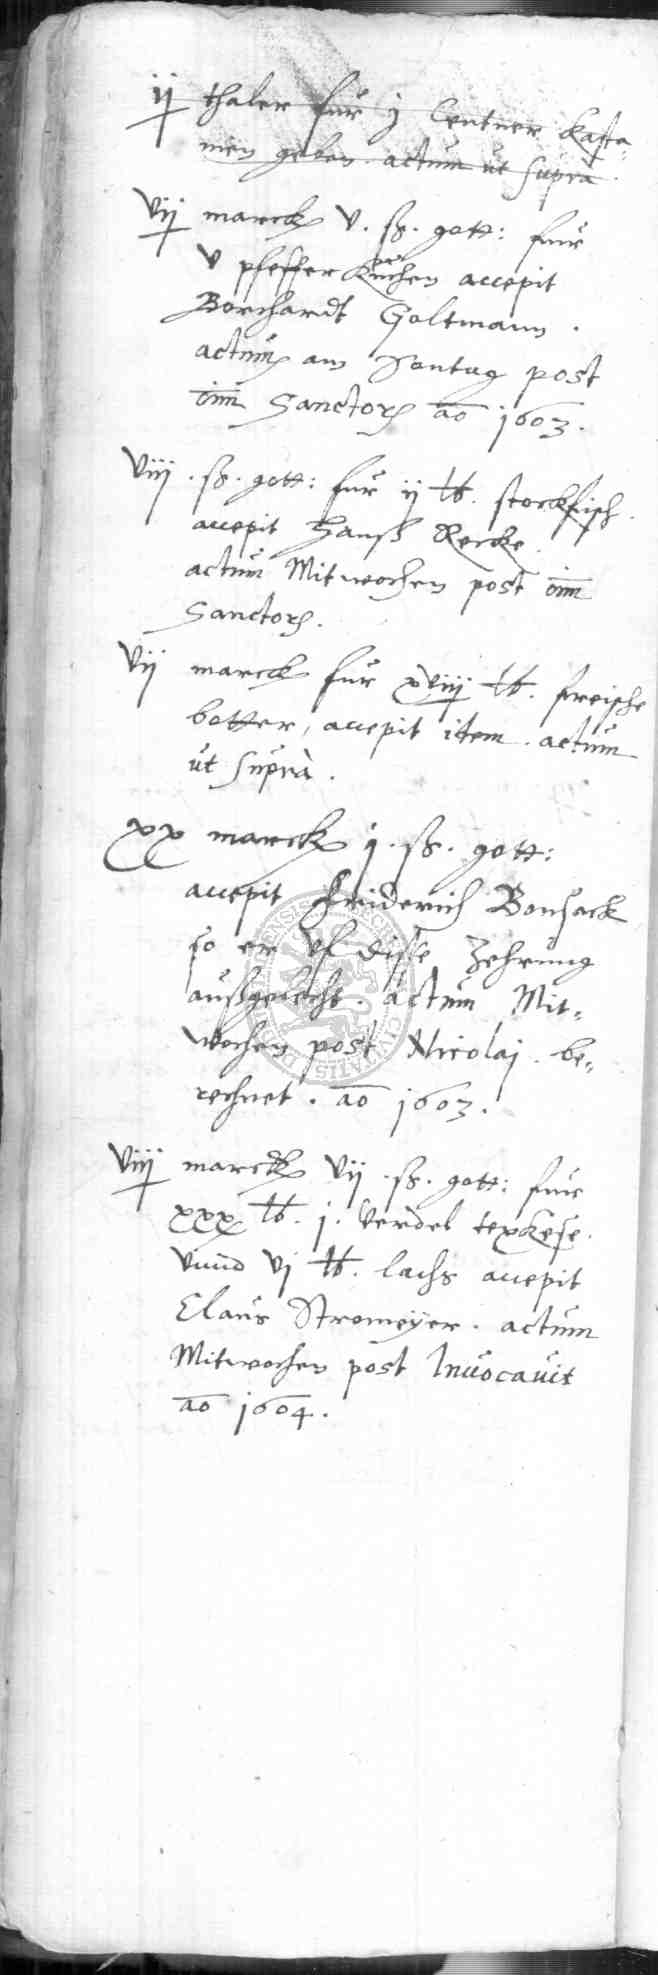 ij thaler fur j Centner kasta-
nien geben. actum ut supra.
vij marck v. ß. gott: fur
v pfefferkuchen accepit
Borchardt Goltmann.
actum am Sontag post
oim Sanctor ao 1603.
viij. ß. gott: fur ij lb. stockfisch.
accepit Hanß Kercke.
actum Mitwochen post oim
Sanctor.
vij marck fur xviij lb. freische
botter, accepit item. actum
ut supra.
xx marck j. ß. gott:
accepit Friderich Bonsack
so er uf disse Zehrung
außgelecht. actum Mit-
wochen post Nicolaj. be-
rechnet. ao 1603.
viij marck vij. ß. gott: fur
xxx lb. j. verdel texkese.
vnnd vj lb. lachs accepit
Claus Stromeyer. actum
Mitwochen post Invocavit
ao 1604.